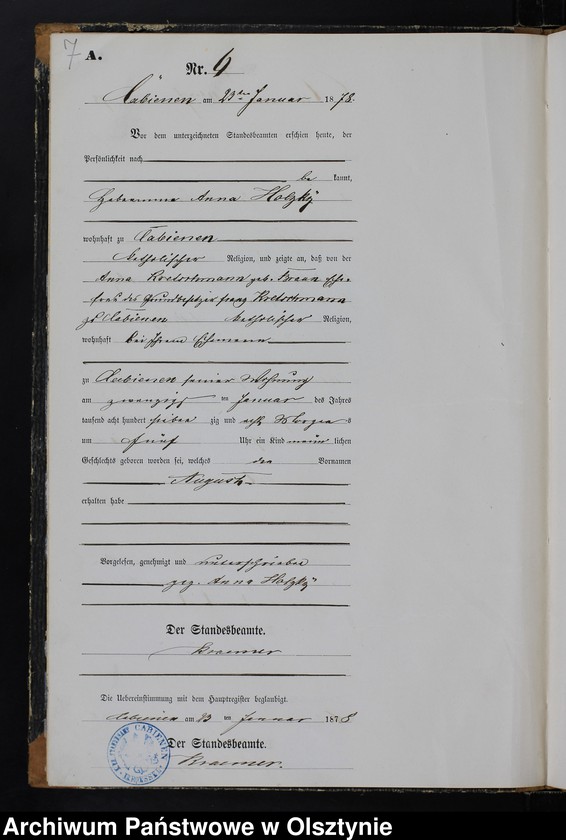 7
A.
Nr. 4
Cabienen am 23ten Januar 1878.
Vor dem unterzeichneten Standesbeamten erschien heute, der
Persönlichkeit nach
be kannt,
Hebeamme Anna Holzky
wohnhaft zu Cabienen
katholischer Religion, und zeigte an, daß von der
Anna Kretschmann geb. Braun Ehe-
frau des Grundbesitzer Franz Kretschmann
zu Cabienen katholischer Religion,
wohnhaft bei ihrem Ehemann
zu Cabienen seiner Wohnung
am zwanzigsten Januar des Jahres
tausend acht hundert sieben zig und acht Morgens
um fünf Uhr ein Kind männlichen
Geschlechts geboren worden sei, welches den Vornamen
August
erhalten habe
Vorgelesen, genehmigt und unterschrieben
gez. Anna Holzky
Der Standesbeamte.
Kraemer
Die Uebereinstimmung mit dem Hauptregister beglaubigt.
Cabienen am 23 ten Januar 1878
Der Standesbeamte.
Kraemer.
CABIENEN
Archiwum Państwowe w Olsztynie